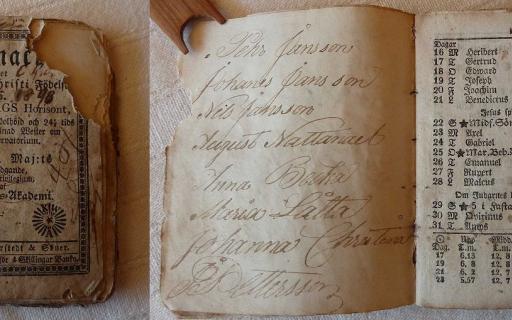 nac
et
hristi Födels
GS Horisont,
olhöid och 24½ tids
nad Wester om
ervatorium.
. Maj:ts
dgande,
rivilegium,
af
s-Akademi.
rstedt & Söner.
de 4 Skillingar Banko
Pehr Jansson
Johanes Jansson
Nils Jansson
August Nattanael
Anna Bo
Maria Lotta
Johanna Christin
Pettersson
Dagar
16 M Heribert
17 T Gertrud
18 O Edward
19 T Joseph
20 F Joachim
21 L Benedictus
Jesus sp
22 S ★ Midf. Sön
23 M Axel
24 T Gabriel
25 O ★ Mar. Beb.
26 T Emanuel
27 F Rupert
28 L Malcus
Om Judarnes
29 S ★ 5 i Fasta
30 M Qvirinus
31 T Amos
Dag. T. m. T. m.
17 6.13 12. 8
19 6. 8 12. 8
21 6. 2 12. 7
23 5.57 12. 7